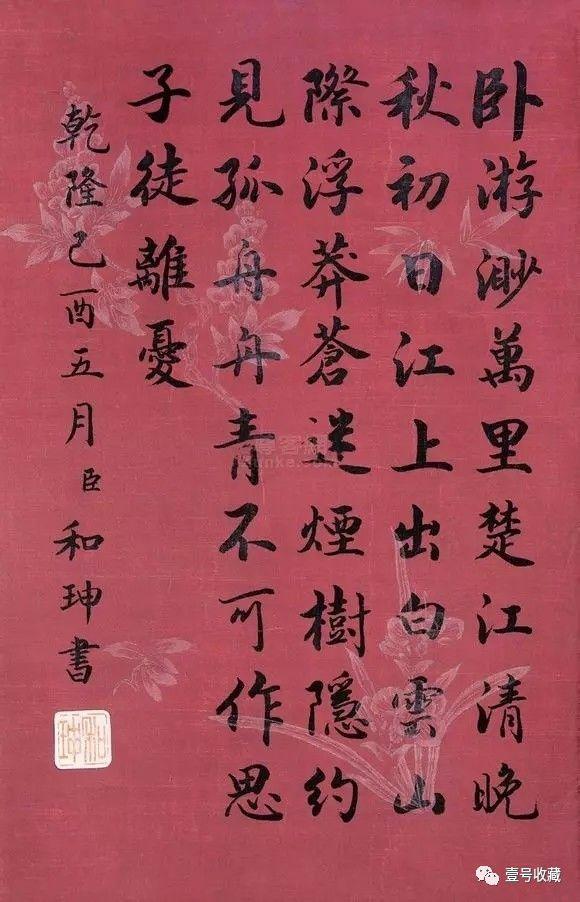 卧游渺萬里楚江清晚
秋初日江上出白雲山
際浮莽蒼迷煙樹隱約
見孤舟丹青不可作思
子徒離憂
乾隆己酉五月臣和珅書
和珅
壹号收藏